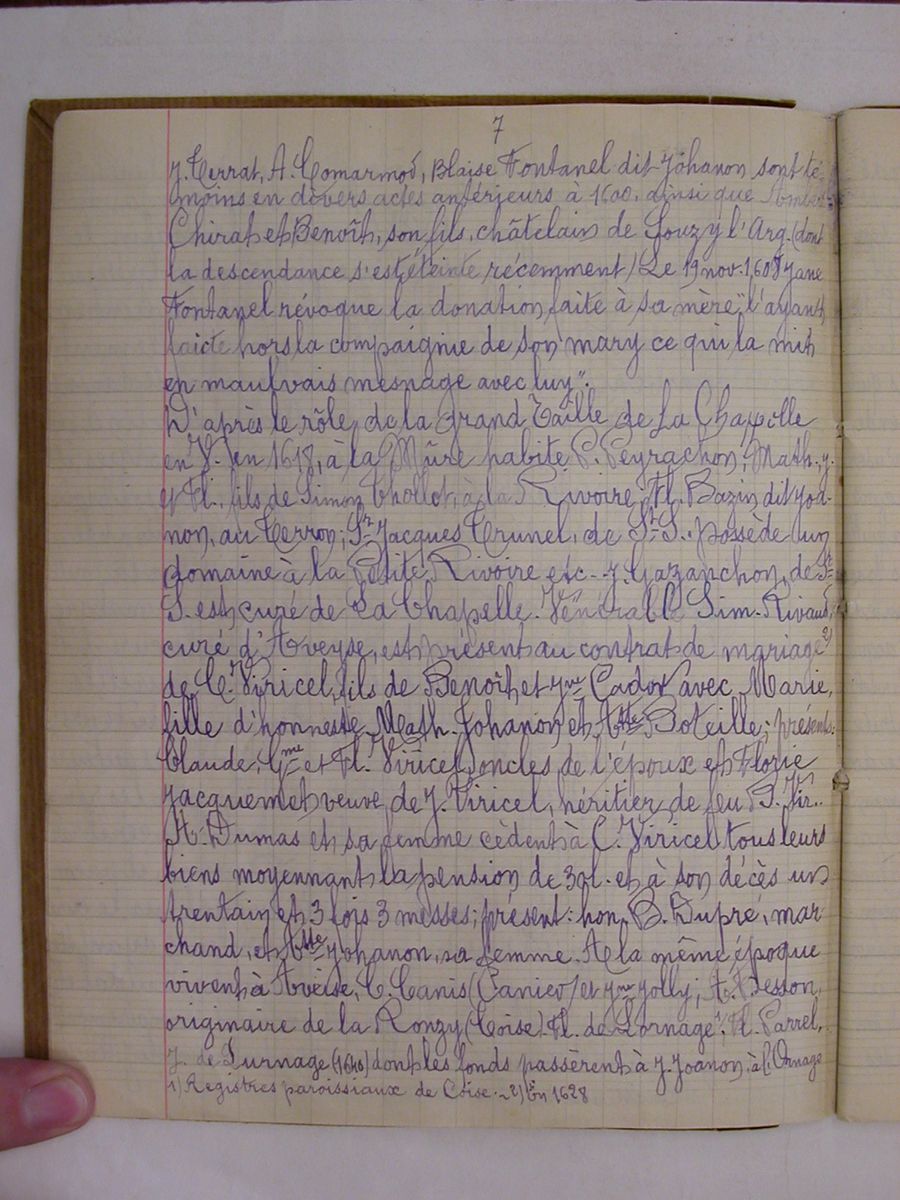 7
J. Terrat, A. Comarmod, Blaise Fontanel dit Johanon sont té-
moins en divers actes antérieurs à 1600, ainsi que
Chirat et Benoît, son fils, châtelain de Souzy l'Arg. (dont
la descendance s'est éteinte récemment) Le 19 nov. 1608 Jane
Fontanel révoque la donation faite à sa mère, "l'ayant
faicte hors la compaignie de son mary ce qui la mit
en maulvais mesnage avec luy".
D'après le rôle de la Grand Taille de La Chapelle
en V. en 1618, à la Mûre habite P. Peyrachon; Math., J.
et Fl., fils de Simon Chollet, à la Rivoire, Fl. Bazin dit Joa-
non, au Terron; Sr Jacques Trunel, de St S. possède un
domaine à la Petite Rivoire etc.. J. Gazanchon, de St
S. est curé de La Chapelle. Vénérable Sim. Rivaud,
curé d'Aveyse, est présent au contrat de mariage 2)
de C. Viricel, fils de Benoît et Jne Cador avec Marie,
fille d'honneste Math. Johanon et Atte Boteille; présents:
Claude, Gme et Fl. Viricel, oncles de l'époux et Florie
Jacquemet veuve de J. Viricel, héritier de feu P. Vir..
A. Dumas et sa femme cèdent à C. Viricel tous leurs
biens moyennant la pension de 30 l. et à son décès un
trentain et 3 fois 3 messes; présent: hon. B. Dupré, mar
chand, et Atte Johanon, sa femme. A la même époque
vivent à Aveise, C. Canis (Canier) et Jne Jolly; A. Besson,
originaire de la Ronzy (Coise). Fl. de Lornage 1). Fl. Parrel,
J. de Lurnage (1640) dont les fonds passèrent à J. Joanon, à l'Ornage
1) Registres paroissiaux de Coise. - 2) En 1628